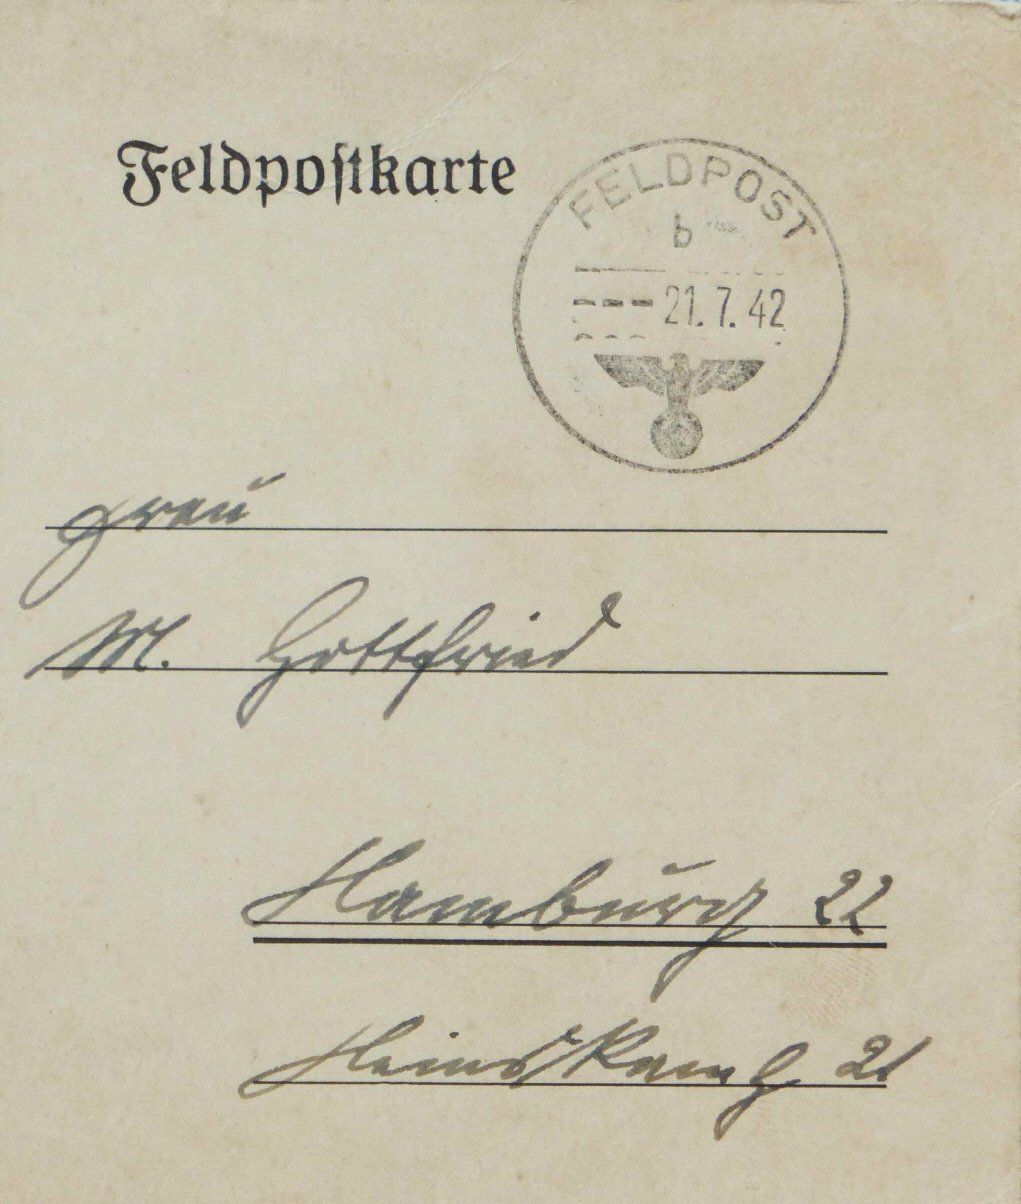 Feldpostkarte
FELDPOST
b
21.7.42
Frau
M. Gottfried
Hamburg 22
Heinskamp 21